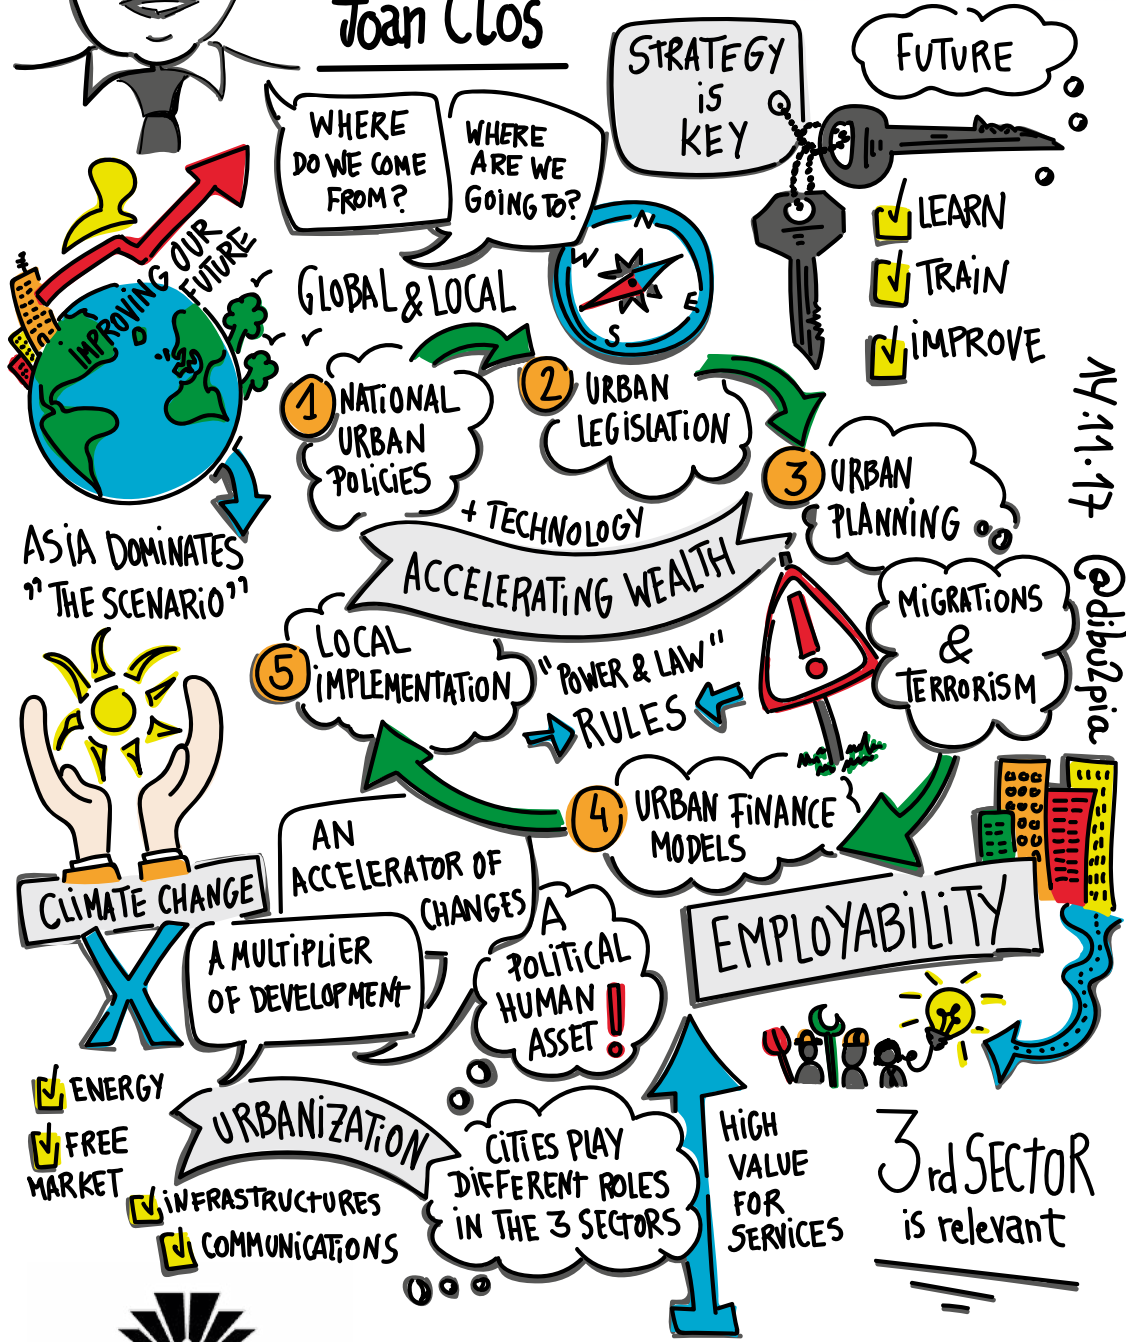 Joan Clos
STRATEGY
is
KEY
FUTURE
WHERE
DO WE COME
FROM?
WHERE
ARE WE
GOING TO?
LEARN
TRAIN
iMPROVE
IMPROVING OUR
FUTURE
GLOBAL & LOCAL
N
W
E
S
1 NATIONAL
URBAN
POLICIES
2 URBAN
LEGISLATION
3 URBAN
PLANNING
14.11.17
@dibu2pia
ASiA DOMINATES
"THE SCENARiO"
+ TECHNOLOGY
ACCELERATiNG WEALTH
MiGRATiONS
&
TERRORiSM
5 LOCAL
iMPLEMENTATION
"POWER & LAW"
RULES
!
4 URBAN FiNANCE
MODELS
CLiMATE CHANGE
AN
ACCELERATOR OF
CHANGES
A MULTiPLiER
OF DEVELOPMENT
A
POLiTiCAL
HUMAN
ASSET !
EMPLOYABiLiTY
ENERGY
FREE
MARKET
iNFRASTRUCTURES
COMMUNiCATiONS
URBANiZATiON
CiTiES PLAY
DiFFERENT ROLES
iN THE 3 SECTORS
HiGH
VALUE
FOR
SERViCES
3rd SECTOR
is relevant